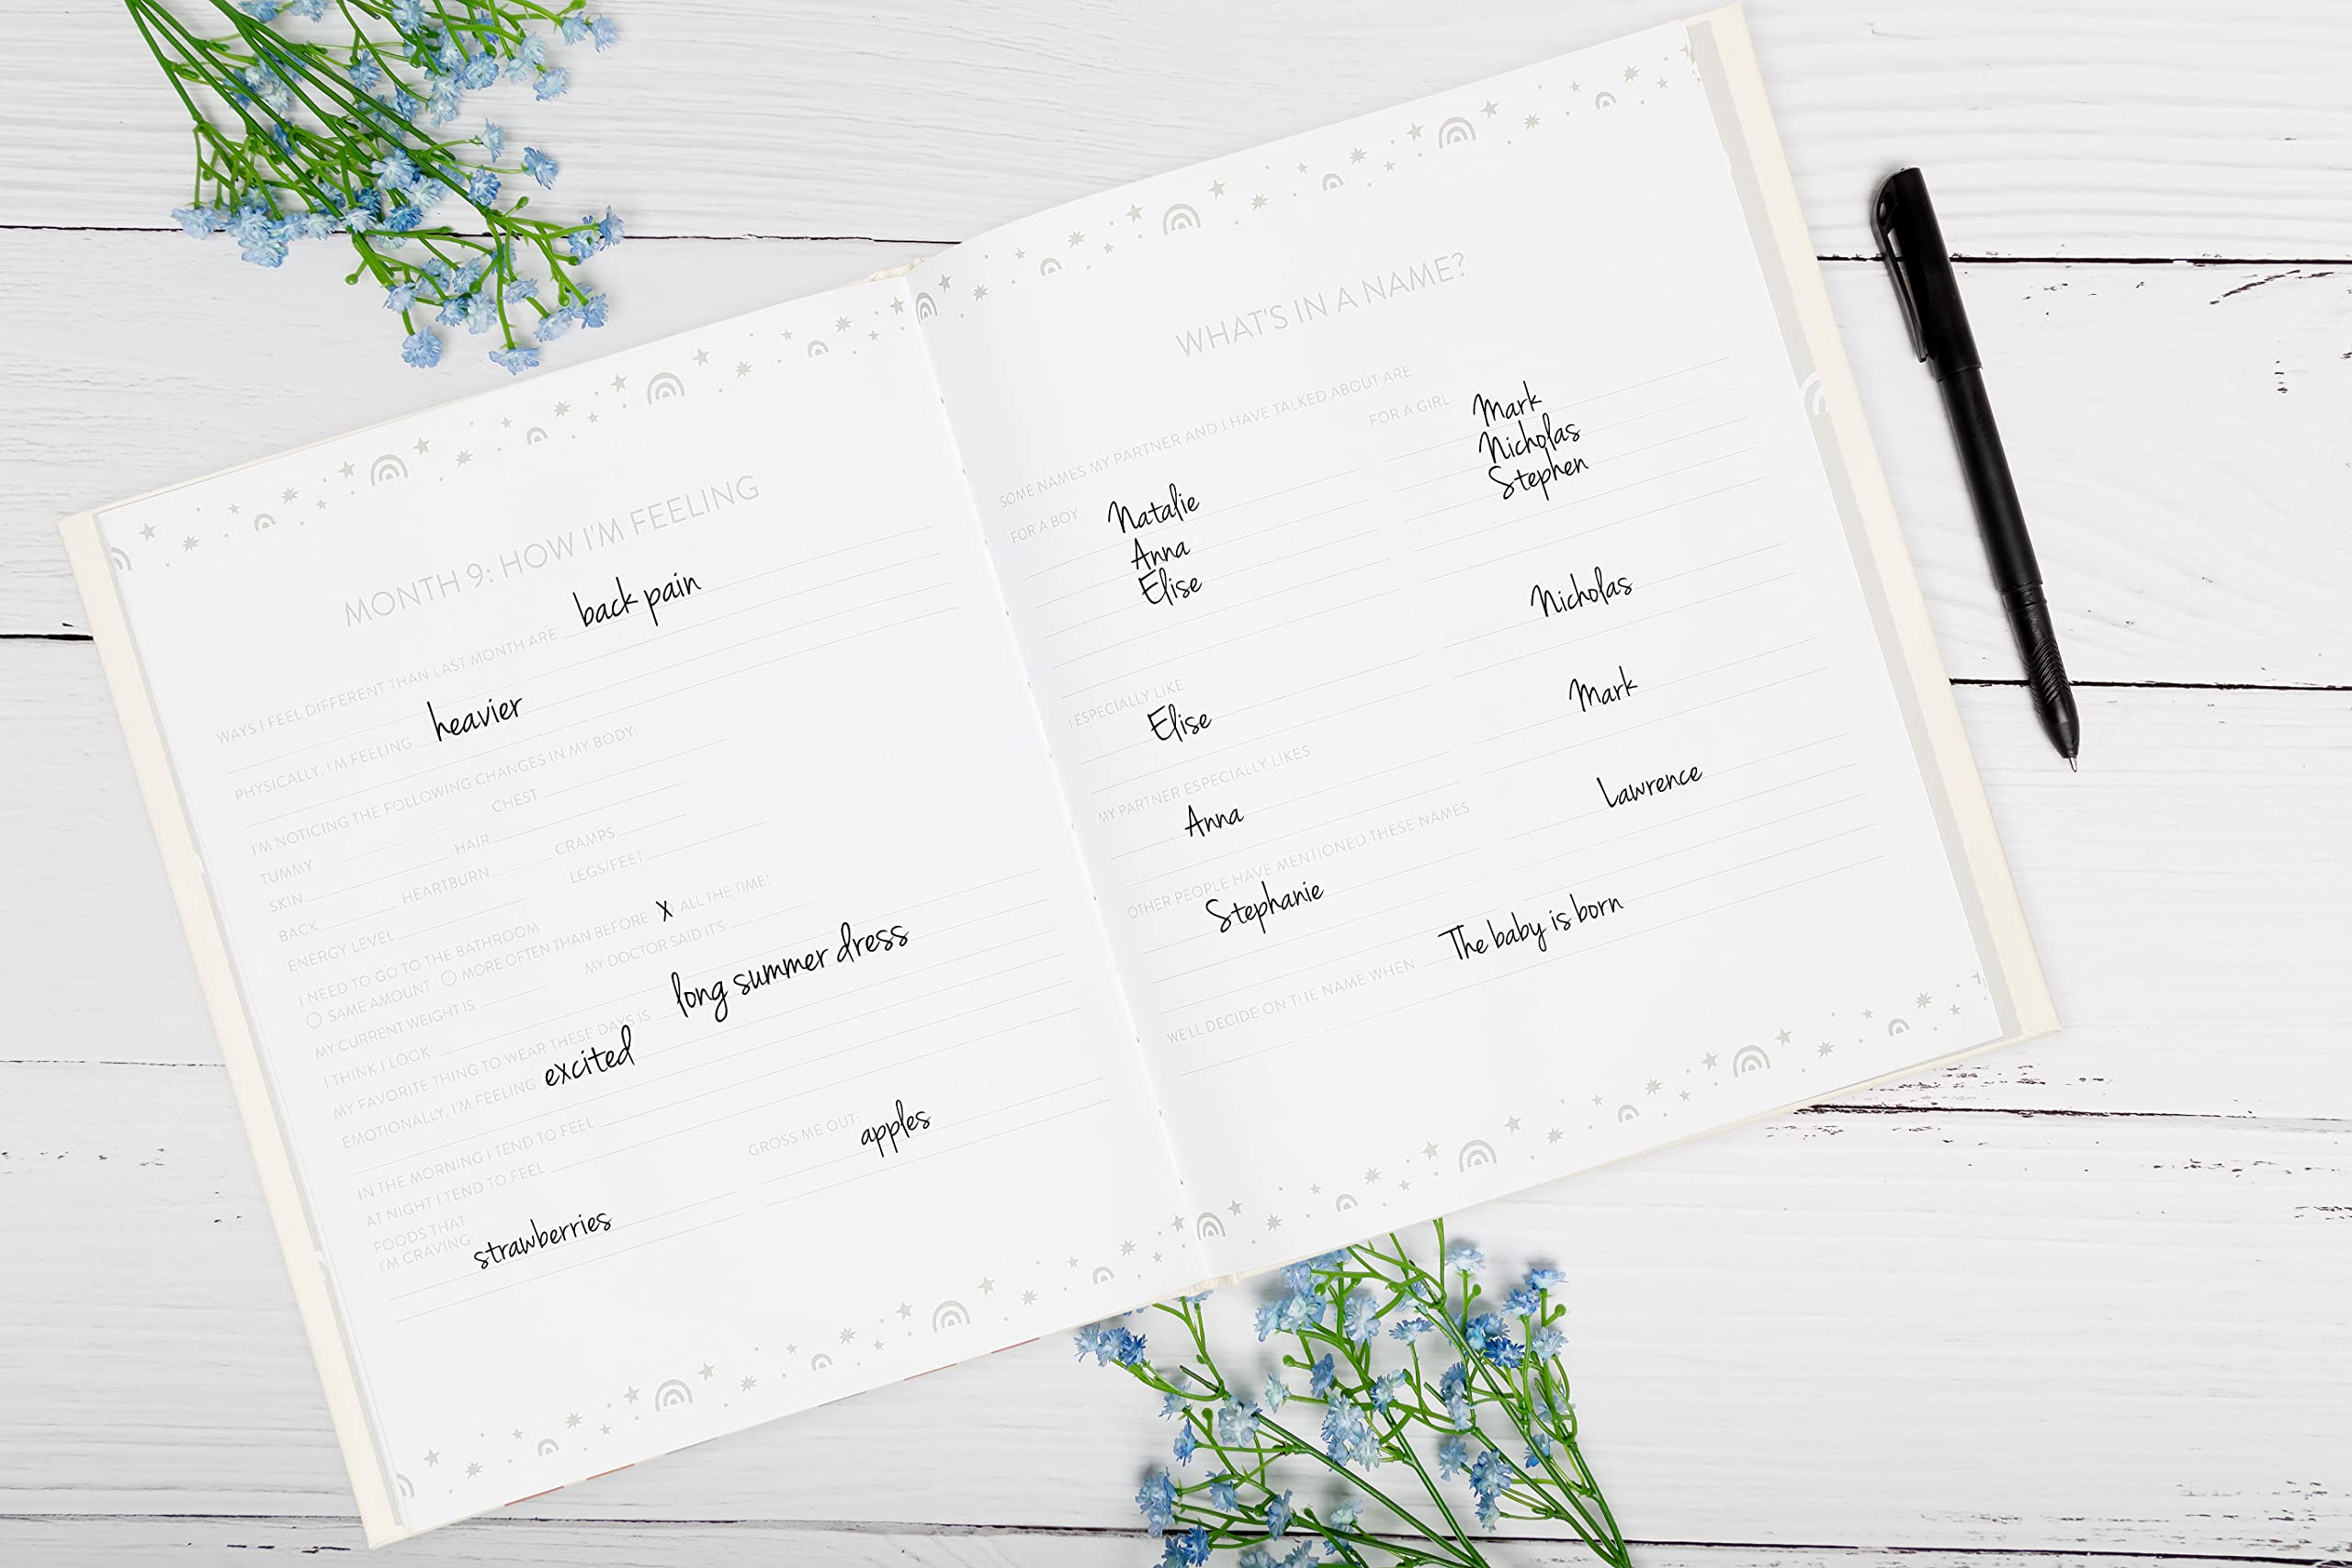 MONTH 9: HOW I'M FEELING
WAYS I FEEL DIFFERENT THAN LAST MONTH ARE back pain
PHYSICALLY, I'M FEELING heavier
I'M NOTICING THE FOLLOWING CHANGES IN MY BODY:
TUMMY CHEST
SKIN HAIR
BACK HEARTBURN CRAMPS
ENERGY LEVEL LEGS/FEET
I NEED TO GO TO THE BATHROOM
SAME AMOUNT MORE OFTEN THAN BEFORE x ALL THE TIME!
MY CURRENT WEIGHT IS MY DOCTOR SAID IT'S
I THINK I LOOK
MY FAVORITE THING TO WEAR THESE DAYS IS long summer dress
EMOTIONALLY, I'M FEELING excited
IN THE MORNING I TEND TO FEEL
AT NIGHT I TEND TO FEEL
FOODS THAT
I'M CRAVING: strawberries
GROSS ME OUT: apples
WHAT'S IN A NAME?
SOME NAMES MY PARTNER AND I HAVE TALKED ABOUT ARE
FOR A BOY Natalie
Anna
Elise
FOR A GIRL Mark
Nicholas
Stephen
I ESPECIALLY LIKE
Elise Nicholas
MY PARTNER ESPECIALLY LIKES
Anna Mark
OTHER PEOPLE HAVE MENTIONED THESE NAMES
Stephanie Lawrence
WE'LL DECIDE ON THE NAME WHEN The baby is born